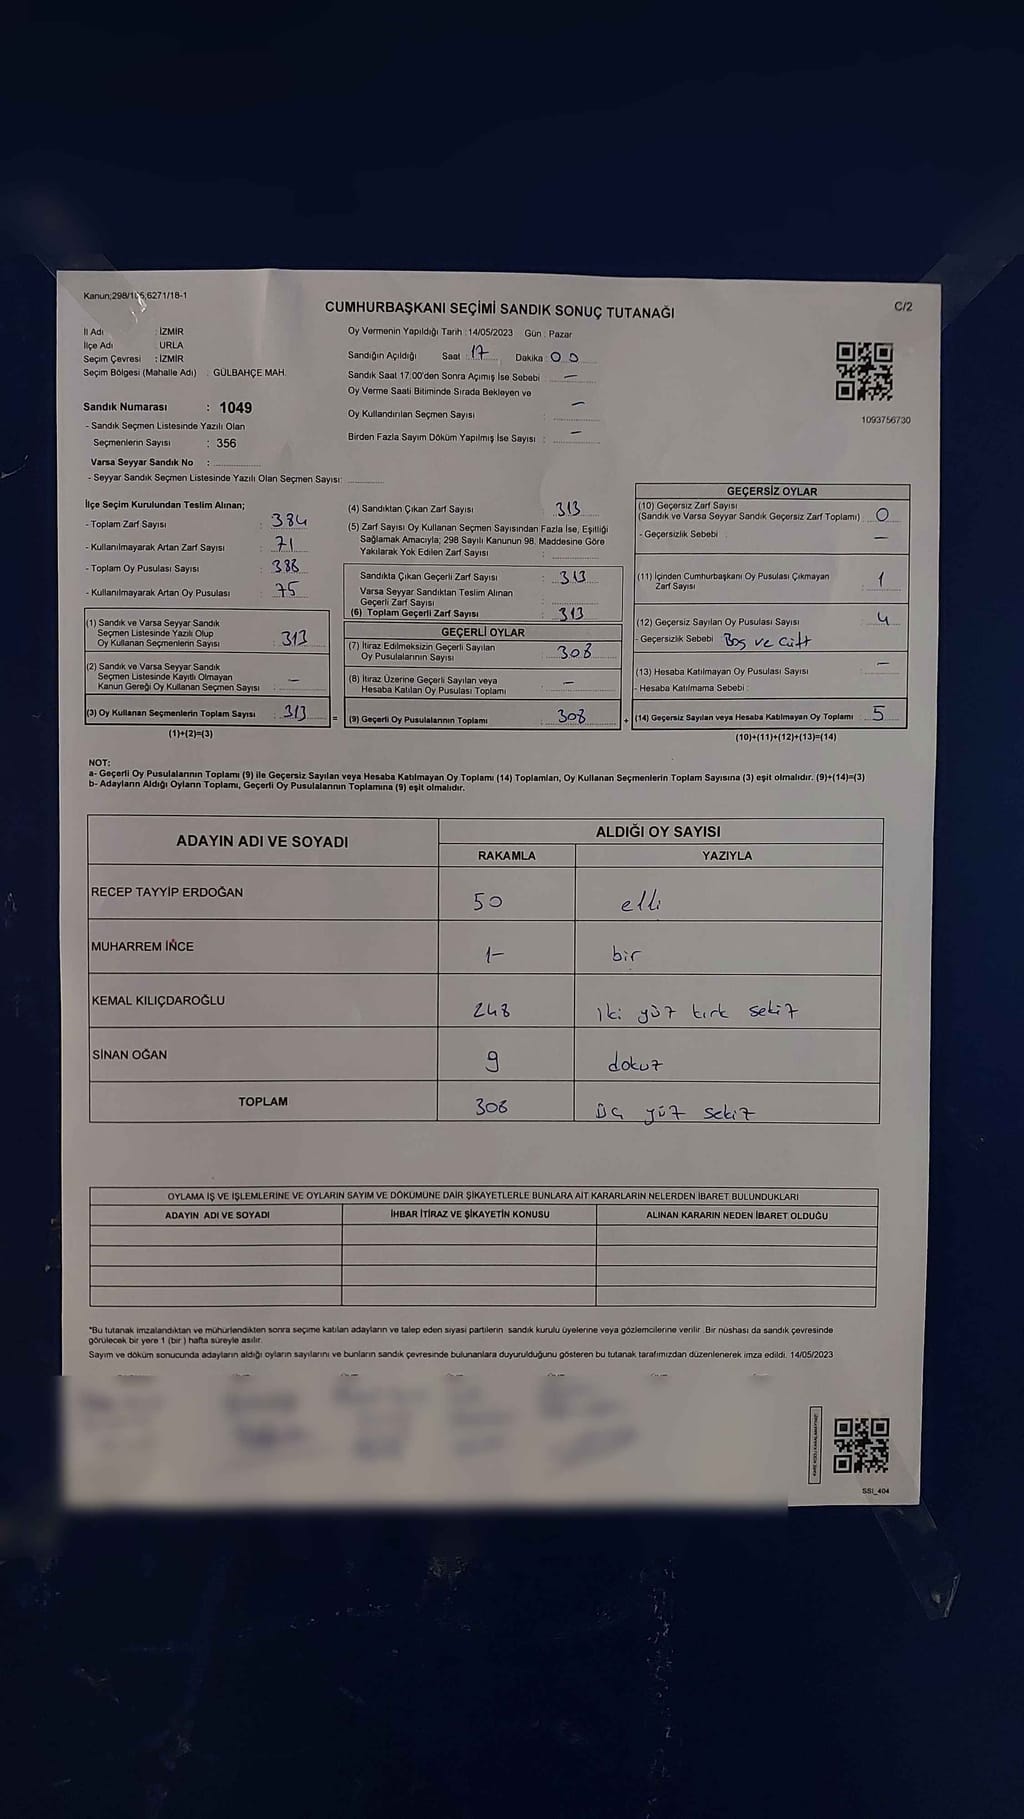 Kanun;298/105;6271/18-1
C/2
CUMHURBAŞKANI SEÇİMİ SANDIK SONUÇ TUTANAĞI
İl Adı : İZMİR
İlçe Adı : URLA
Seçim Çevresi : İZMİR
Seçim Bölgesi (Mahalle Adı) : GÜLBAHÇE MAH.
Sandık Numarası : 1049
- Sandık Seçmen Listesinde Yazılı Olan
Seçmenlerin Sayısı : 356
Varsa Seyyar Sandık No :
- Seyyar Sandık Seçmen Listesinde Yazılı Olan Seçmen Sayısı:
Oy Vermenin Yapıldığı Tarih : 14/05/2023 Gün : Pazar
Sandığın Açıldığı Saat : 17 Dakika : 00
Sandık Saat 17:00'den Sonra Açımış İse Sebebi : —
Oy Verme Saati Bitiminde Sırada Bekleyen ve
Oy Kullandırılan Seçmen Sayısı : —
Birden Fazla Sayım Döküm Yapılmış İse Sayısı : —
1093756730
İlçe Seçim Kurulundan Teslim Alınan;
- Toplam Zarf Sayısı : 384
- Kullanılmayarak Artan Zarf Sayısı : 71
- Toplam Oy Pusulası Sayısı : 388
- Kullanılmayarak Artan Oy Pusulası : 75
(1) Sandık ve Varsa Seyyar Sandık
Seçmen Listesinde Yazılı Olup
Oy Kullanan Seçmenlerin Sayısı : 313
(2) Sandık ve Varsa Seyyar Sandık
Seçmen Listesinde Kayıtlı Olmayan
Kanun Gereği Oy Kullanan Seçmen Sayısı : —
(3) Oy Kullanan Seçmenlerin Toplam Sayısı : 313
(1)+(2)=(3)
(4) Sandıktan Çıkan Zarf Sayısı : 313
(5) Zarf Sayısı Oy Kullanan Seçmen Sayısından Fazla İse, Eşitliği
Sağlamak Amacıyla; 298 Sayılı Kanunun 98. Maddesine Göre
Yakılarak Yok Edilen Zarf Sayısı :
Sandıkta Çıkan Geçerli Zarf Sayısı : 313
Varsa Seyyar Sandıktan Teslim Alınan
Geçerli Zarf Sayısı :
(6) Toplam Geçerli Zarf Sayısı : 313
GEÇERLİ OYLAR
(7) İtiraz Edilmeksizin Geçerli Sayılan
Oy Pusulalarının Sayısı : 308
(8) İtiraz Üzerine Geçerli Sayılan veya
Hesaba Katılan Oy Pusulası Toplamı : —
= (9) Geçerli Oy Pusulalarının Toplamı : 308
GEÇERSİZ OYLAR
(10) Geçersiz Zarf Sayısı
(Sandık ve Varsa Seyyar Sandık Geçersiz Zarf Toplamı) : 0
- Geçersizlik Sebebi : —
(11) İçinden Cumhurbaşkanı Oy Pusulası Çıkmayan
Zarf Sayısı : 1
(12) Geçersiz Sayılan Oy Pusulası Sayısı : 4
- Geçersizlik Sebebi : Boş ve Çift
(13) Hesaba Katılmayan Oy Pusulası Sayısı : —
- Hesaba Katılmama Sebebi :
+ (14) Geçersiz Sayılan veya Hesaba Katılmayan Oy Toplamı : 5
(10)+(11)+(12)+(13)=(14)
NOT:
a- Geçerli Oy Pusulalarının Toplamı (9) ile Geçersiz Sayılan veya Hesaba Katılmayan Oy Toplamı (14) Toplamları, Oy Kullanan Seçmenlerin Toplam Sayısına (3) eşit olmalıdır. (9)+(14)=(3)
b- Adayların Aldığı Oyların Toplamı, Geçerli Oy Pusulalarının Toplamına (9) eşit olmalıdır.
ADAYIN ADI VE SOYADI ALDIĞI OY SAYISI
RAKAMLA YAZIYLA
RECEP TAYYİP ERDOĞAN 50 elli
MUHARREM İNCE 1- bir
KEMAL KILIÇDAROĞLU 248 iki yüz kırk sekiz
SİNAN OĞAN 9 dokuz
TOPLAM 308 üç yüz sekiz
OYLAMA İŞ VE İŞLEMLERİNE VE OYLARIN SAYIM VE DÖKÜMÜNE DAİR ŞİKAYETLERLE BUNLARA AİT KARARLARIN NELERDEN İBARET BULUNDUKLARI
ADAYIN ADI VE SOYADI İHBAR İTİRAZ VE ŞİKAYETİN KONUSU ALINAN KARARIN NEDEN İBARET OLDUĞU
*Bu tutanak imzalandıktan ve mühürlendikten sonra seçime katılan adayların ve talep eden siyasi partilerin sandık kurulu üyelerine veya gözlemcilerine verilir. Bir nüshası da sandık çevresinde
görülecek bir yere 1 (bir ) hafta süreyle asılır.
Sayım ve döküm sonucunda adayların aldığı oyların sayılarını ve bunların sandık çevresinde bulunanlara duyurulduğunu gösteren bu tutanak tarafımızdan düzenlenerek imza edildi. 14/05/2023
SSI_404